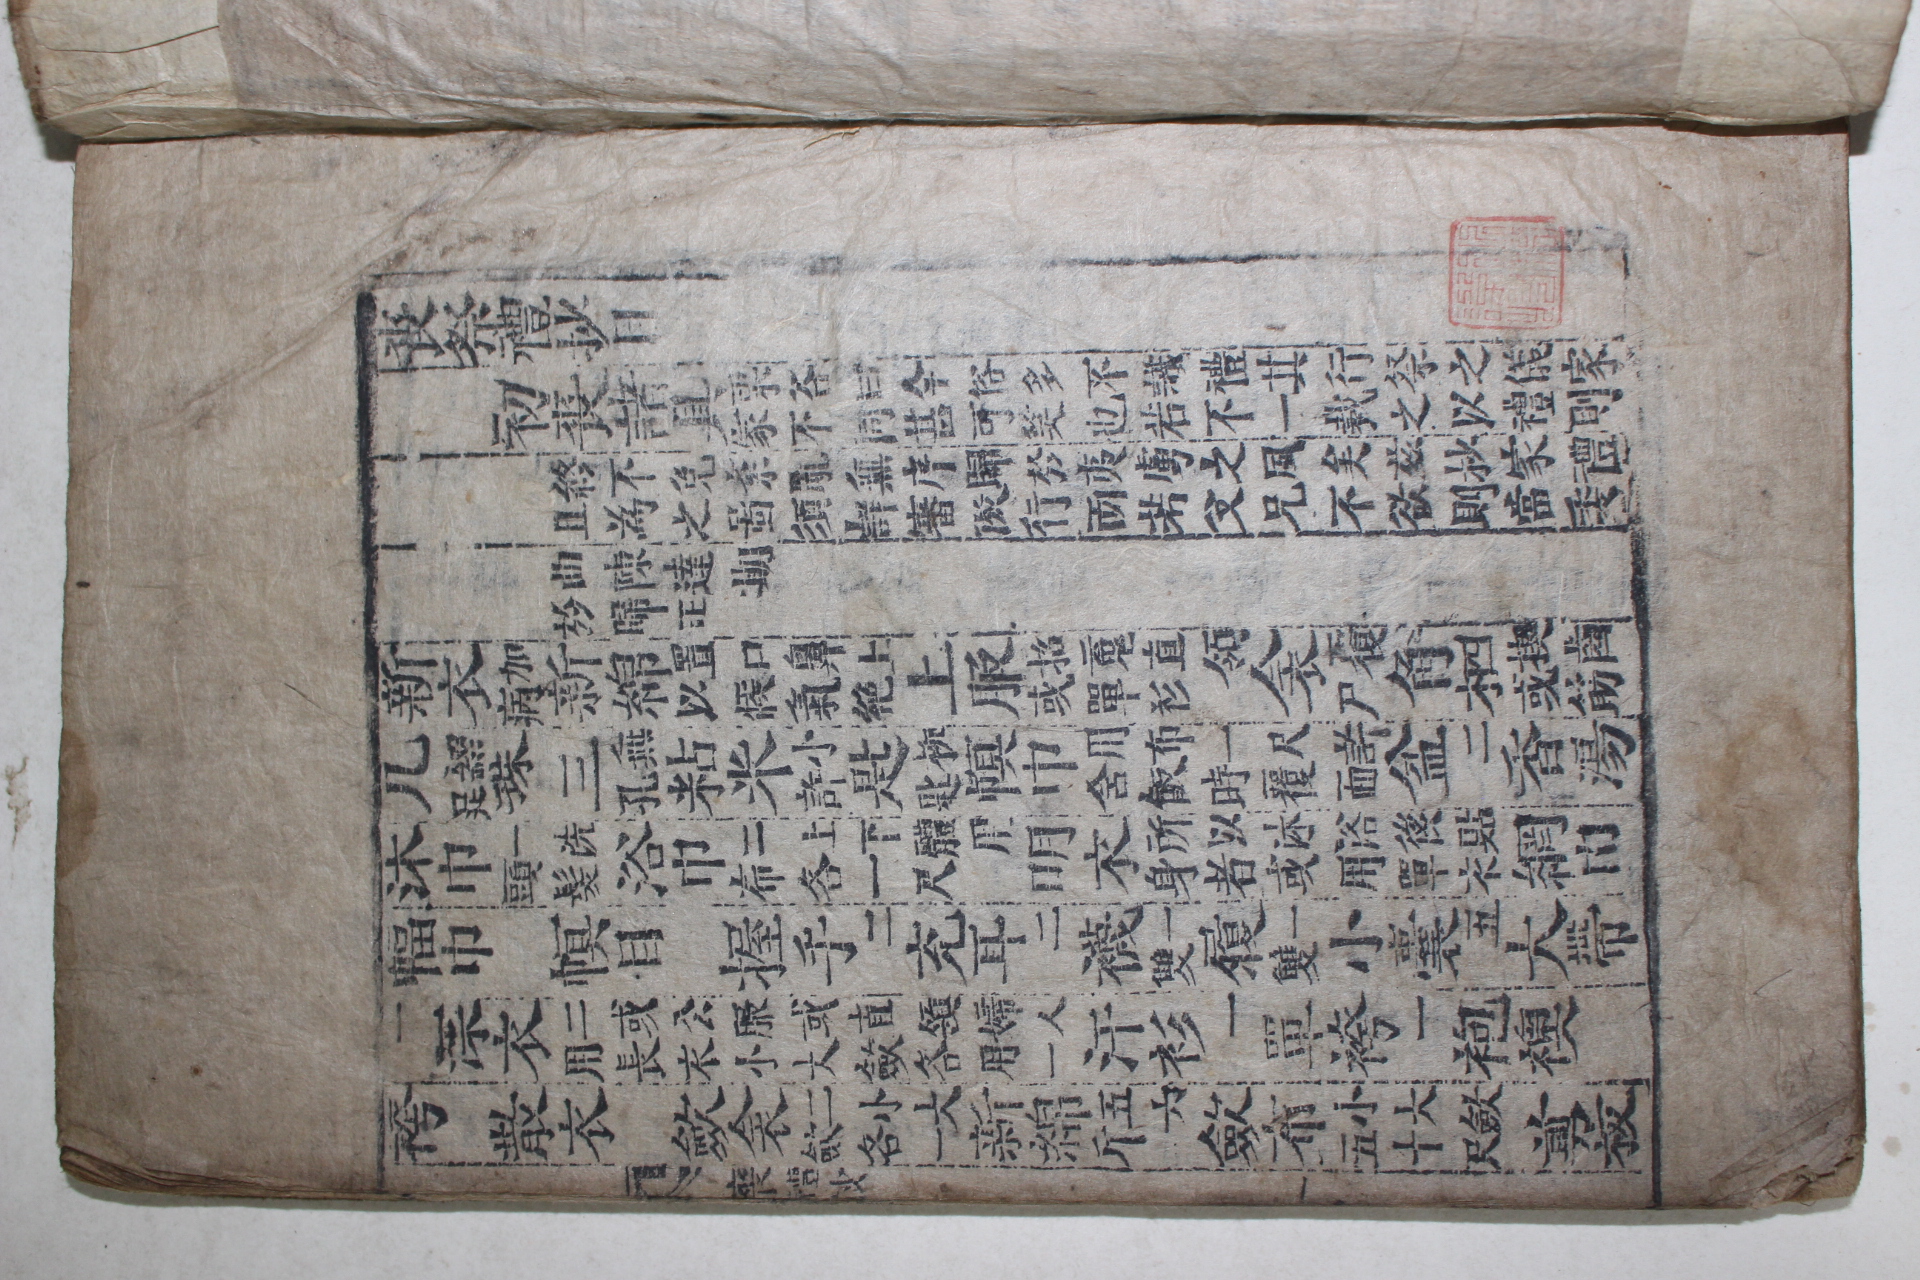 喪祭禮抄目
初喪諸具 栗谷曰今俗多不識禮其行祭之儀家
家不同甚可笑也若不一裁之以禮則
終不免紊亂無序歸於夷虜之風矣玆抄家禮
且爲之啚須詳審倣行而若父兄不欲則當委
曲陳達期
於歸正
新衣加病新綿置口鼻上以候氣絶上服招䰟直領或單衫衾覆尸角柶楔齒或筯
几綴足珠三無孔粘米小許匙柳匙幎巾用布一尺許含飯時覆面盆二香湯
沐巾一洗頭髮浴巾二上下體用布各一尺明衣所以沐浴後點身者或用單衣網巾
幅巾 幎目 握手二充耳二襪一雙履一雙小囊五大帶
一深衣二或公服或直領婦人用長衣小大斂各用一汗衫一單袴一袍襖
袴 散衣 斂衾二小大斂各一新綿五六斤斂布小大斂五十尺
喪禮抄
一